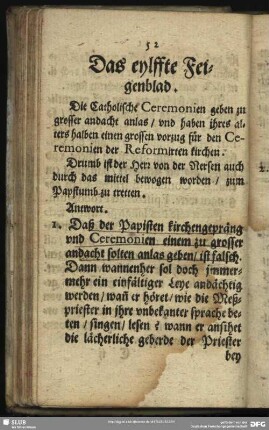 52
Das eylffte Fei-
genblad.
Die Catholische Ceremonien geben zu
grosser andacht anlas / vnd haben ihres al-
ters halben einen grossen vorzug für den Ce-
remonien der Reformirten kirchen.
Drumb ist der Herr von der Nersen auch
durch das mittel bewogen worden / zum
Papstumb zu tretten.
Antwort.
1. Daß der Papisten kirchengepräng
vnd Ceremonien einem zu grosser
andacht solten anlas geben / ist falsch.
Dann wannenher sol doch jmmer-
mehr ein einfältiger Leye andächtig
werden / wañ er höret / wie die Meß-
priester in jhrer vnbekanter sprache be-
ten / singen / lesen? wann er ansihet
die lächerliche geberde der Priester
bey
SLUB
DFG